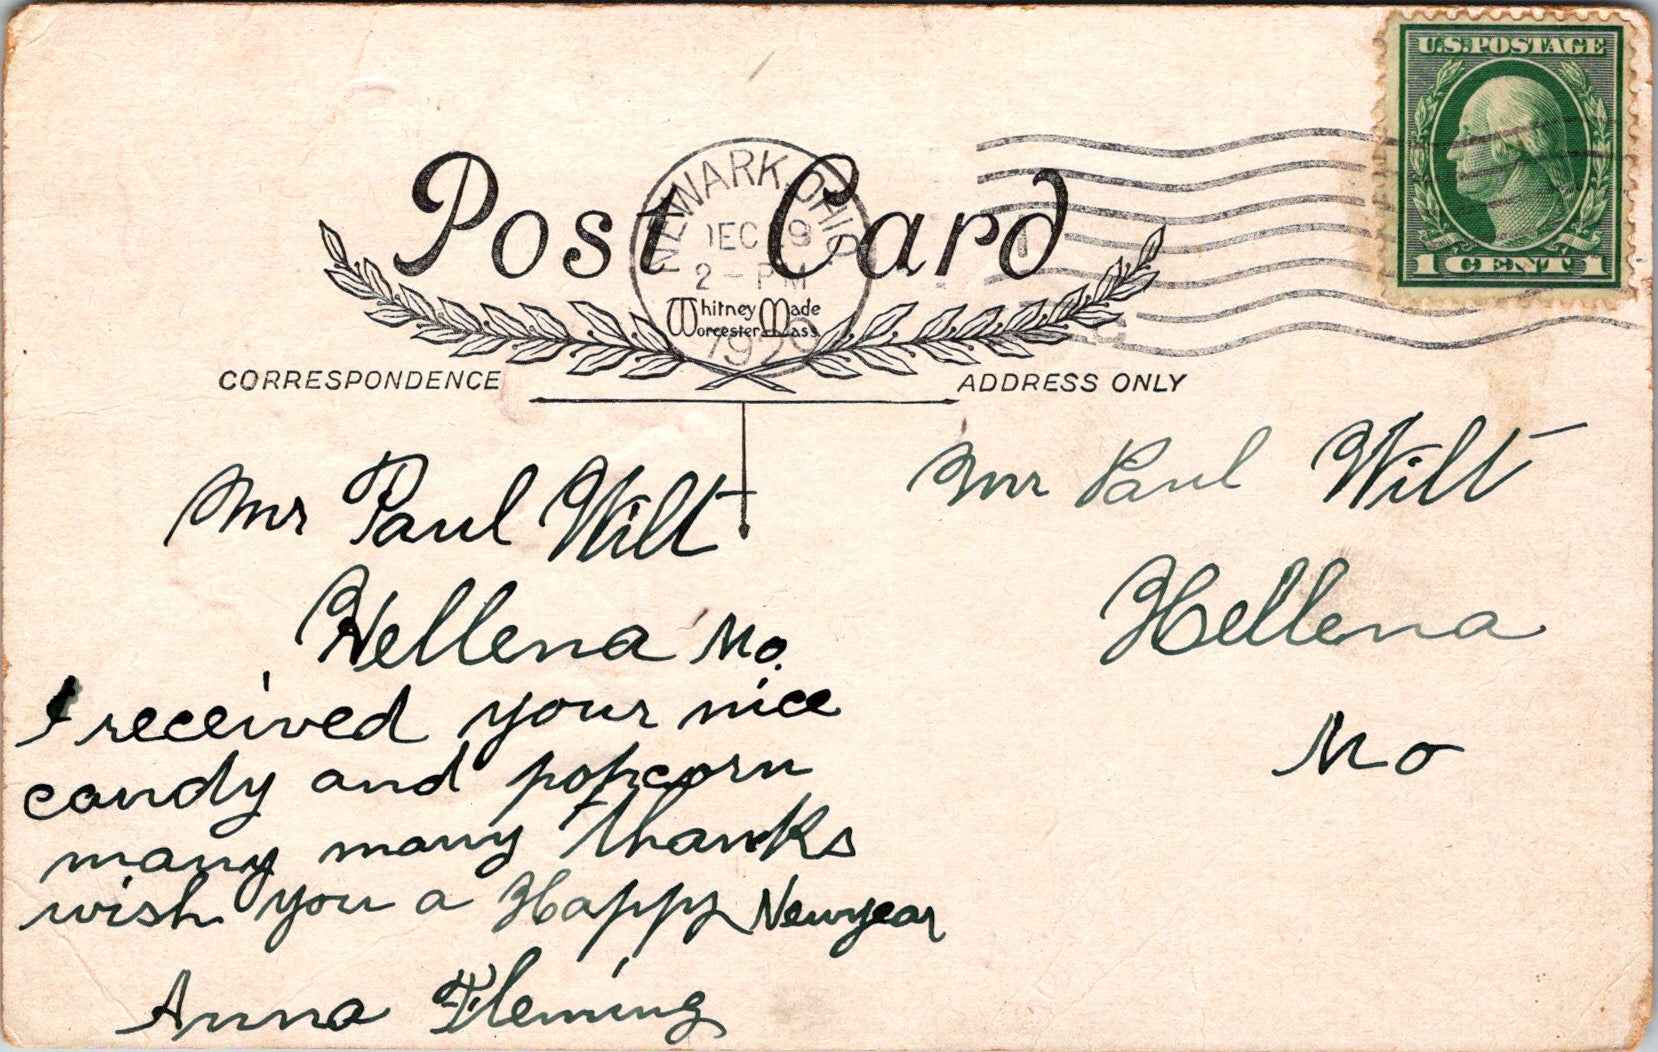 U.S. POSTAGE
1 CENT 1
Post Card
NEWARK, OHIO
DEC 9
2 - PM
Whitney Made
Worcester Mass
CORRESPONDENCE
ADDRESS ONLY
Mr Paul Wilt
Hellena Mo.
I received your nice
candy and popcorn
many many thanks
wish you a Happy Newyear
Anna Fleming
Mr Paul Wilt
Hellena
Mo